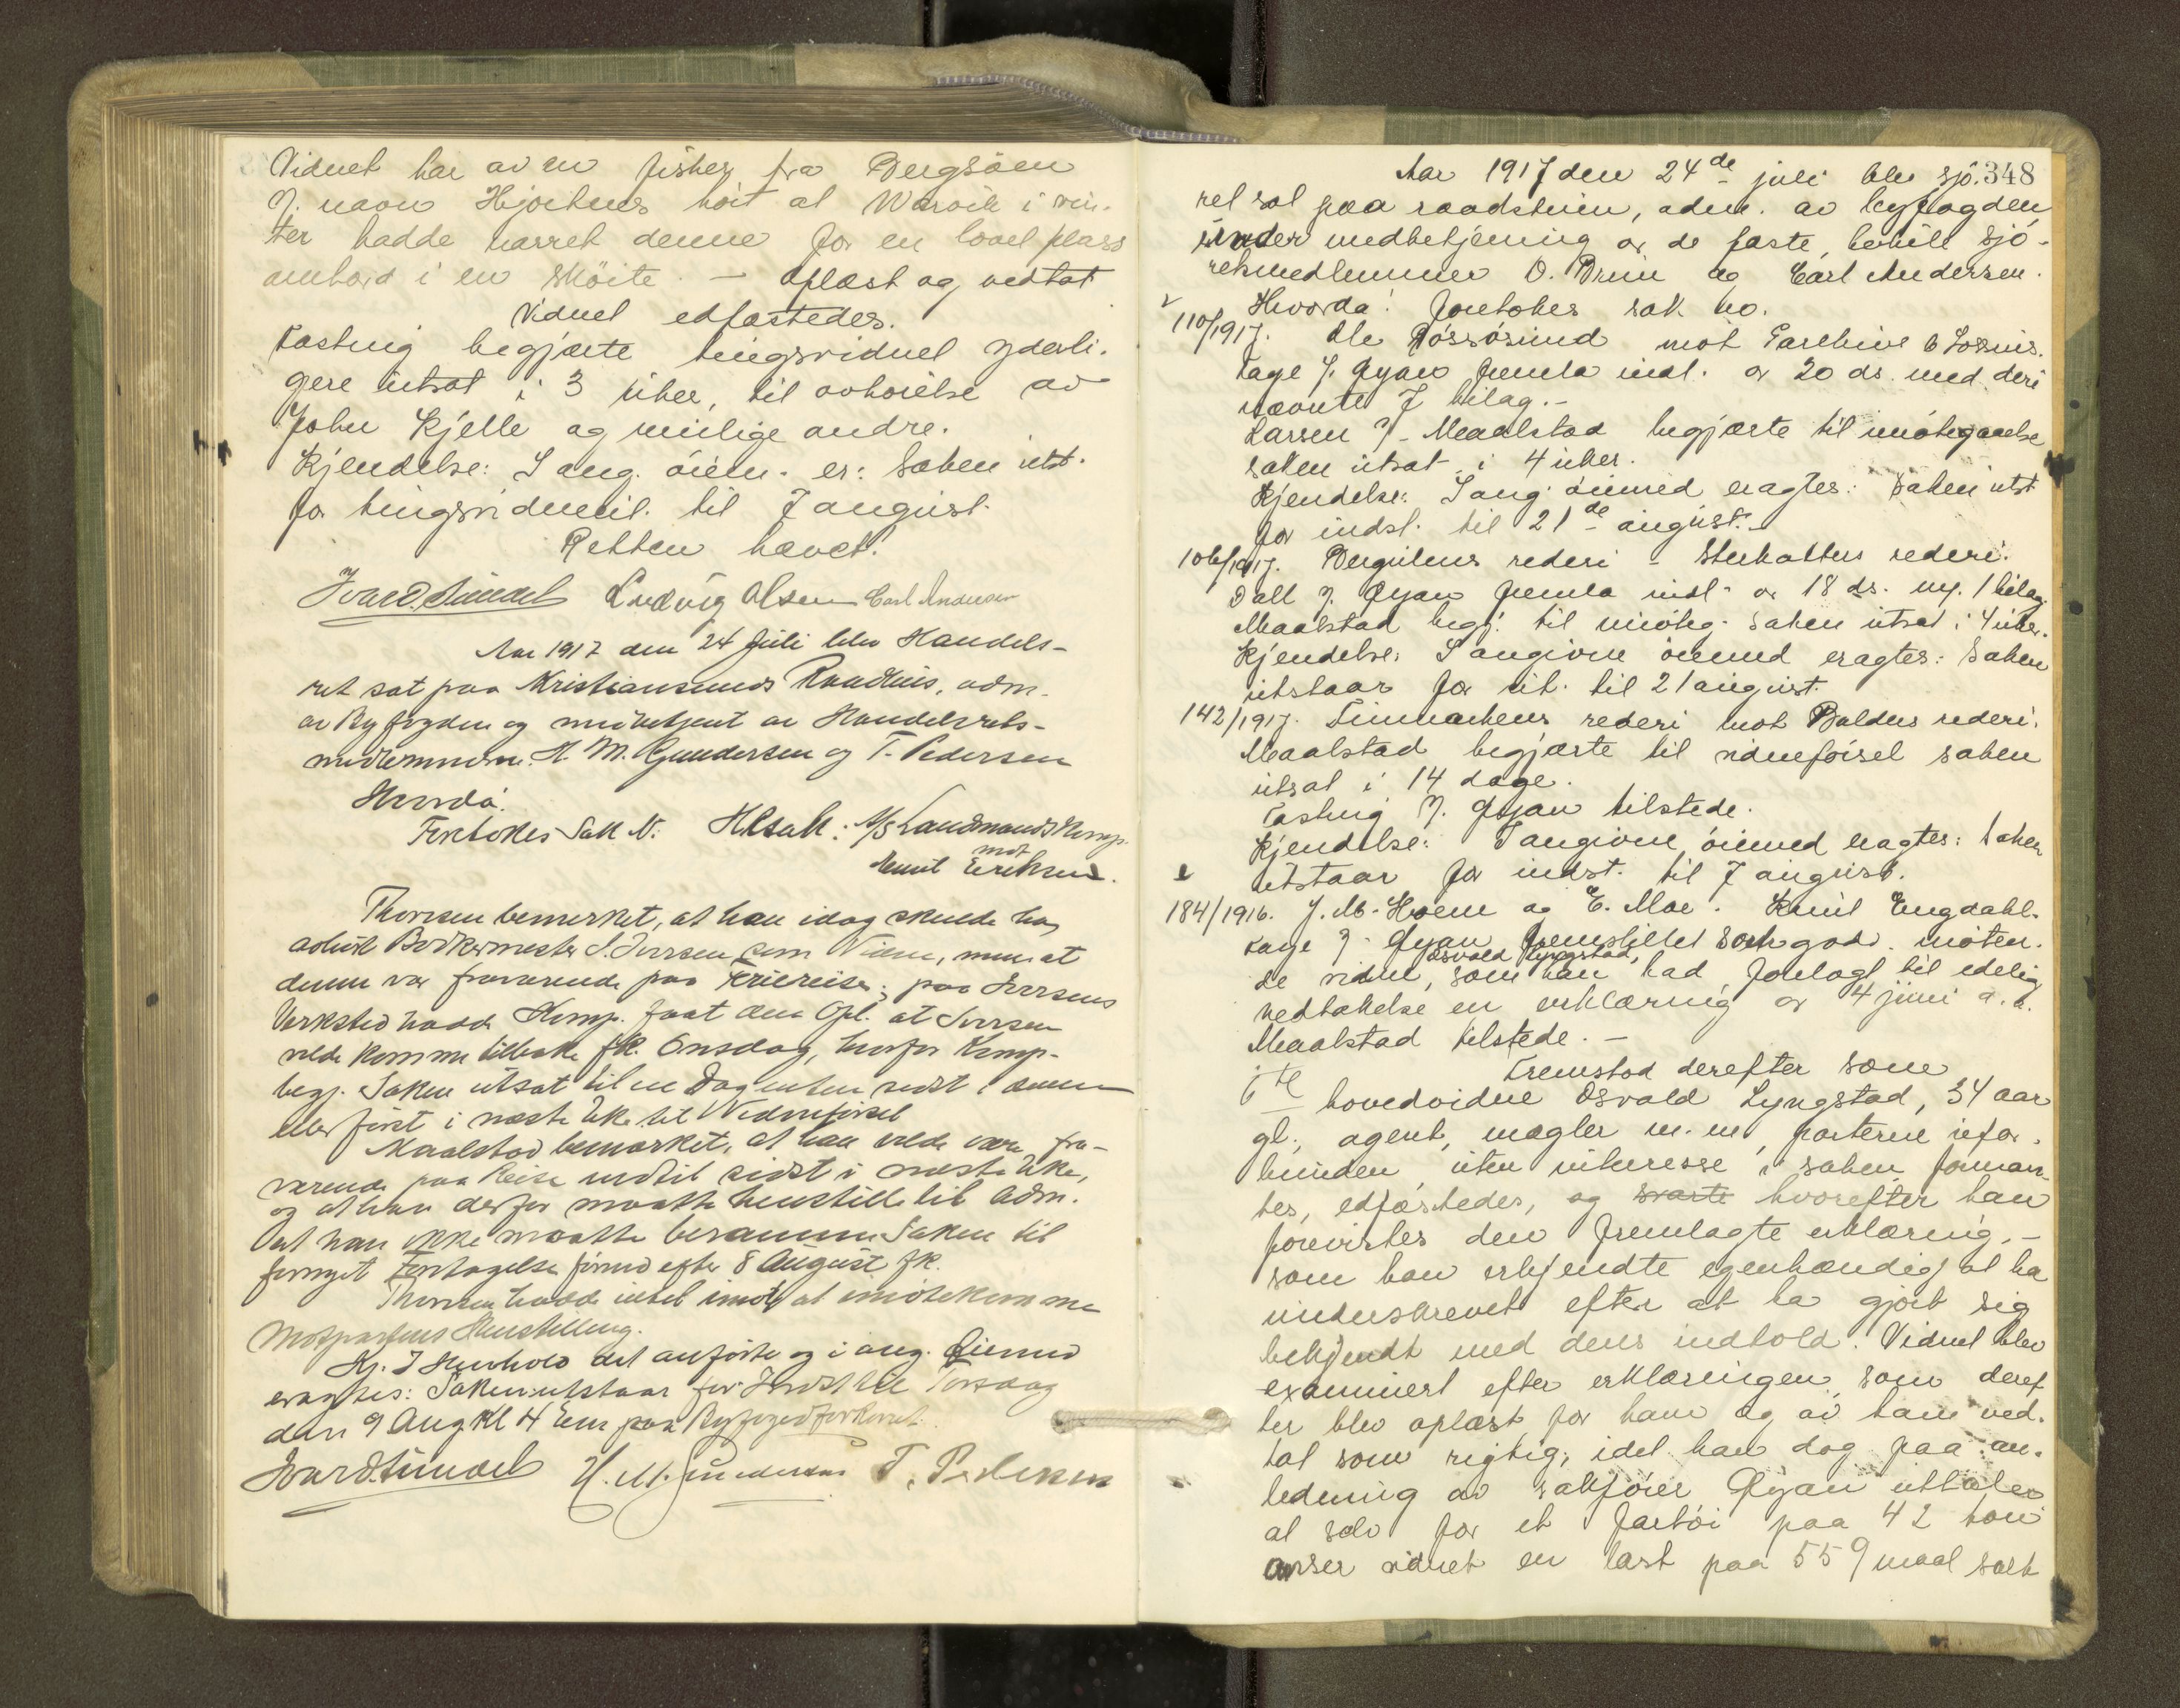 Vidnet har av en fisker fra Bergsöen
v. navn Hjorthues hört at Warvik i vin-
ter hadde narret denne for en lovet plass
ombord i en skøite. — Oplæst og vedtat
Vidnet edfæstedes.
Fasting begjærte tingsvidnet yderli-
gere utsat i 3 uker, til avhørelse av
John Kjelle og mulige andre.
Kjendelse: I ang. öiem. er: Saken utst.
for tingsvidne til 7 august.
Retten hævet.
Ludvig Olsen Carl Andersen
Aar 1917 den 24 Juli blev Handels-
ret sat paa Kristiansunds Raadhus, adm.
av Byfogden og medbetjent av Handelsrets-
medlemmene H. M. Gundersen og T. Pedersen
Hvorda:
Foretokes Sak N: H.sak: A/S Landmands Komp.
mot
Knut Eriksen.
Thoresen bemerket, at han idag skulde ha
avhørt Bødkermester S. Iversen som Vidne, men at
denne var fraværende paa Feriereise; paa Iversens
Verksted hadde Komp. faat den Opl. at Iversen
vilde komme tilbake fk. Onsdag, hvorfor Komp.
begj. Saken utsat til en Dag enten sidst i denne
eller først i næste Uke til Vidneførsel
Maalstad bemærket, at han vilde være fra-
værende paa Reise indtil sidst i næste Uke,
og at han derfor maatte henstille til Adm.
at han ikke maatte beramme Saken til
fornyet Foretagelse förend efter 8 August fk.
Thoresen hadde intet imot at imötekomme
Motpartens Henstilling.
Kj. I Henhold det anførte og i ang. Öiemed
eragtes: Saken utstaar for Indst til Torsdag
den 9 Aug Kl 4 Em paa Byfogedkontoret.
H. M. Gundersen T. Pedersen
348
Aar 1917 den 24de juli blev sjö-
ret sat paa raadstuen, adm. av byfogden
under medbetjening av de faste, bevilt sjö-
retsmedlemmer O. Bruu og Carl Andersen.
Hvorda! Foretokes sak no.
110/1917. Ole Røssøsund mot
Tage f. Gyan fremla indl. av 20 ds. med deri
nævnte 7 bilag.—
Larsen f. Maalstad begjærte til imøtegaaelse
saken utsat i 4 uker.
Kjendelse: I ang. öiemed eragtes: Saken utst
for indst. til 21de august.—
106/1917. Bergulens rederi – Sterkoders rederi.
Dall f. Gyan fremla indl. av 18 ds. m. 1 bilag.
Maalstad begj. til imøteg. saken utsat i 4 uker.
Kjendelse: I angivne öiemed eragtes: Saken
utstaar for ut. til 21 august.
142/1917. Finmarkens rederi mot Balders rederi.
Maalstad begjærte til vidneførsel saken
utsat i 14 dage.
Fasting f. Gyan tilstede.
Kjendelse: I angivne öiemed eragtes: Saken
utstaar for indst. til 7 august.
184/1916. J. M. Hoem og E. Moe. Knut Engdahl.
Tage f. Gyan fremstillet som godv. møten-
Osvald Lyngstad,
de vidne, som han bad forelagt til edelig
vedtakelse en erklæring av 4 juni a. c.
Maalstad tilstede. —
Fremstod derefter som
6te hovedvidne Osvald Lyngstad, 34 aar
gl., agent, mægler m. m., parterne ufor-
bunden uten interesse i saken forman-
tes, edfæstedes, og svarte hvorefter han
forevistes den fremlagte erklæring, —
som han erkjendte egenhændig at ha
underskrevet efter at ha gjort sig
bekjendt med dens indhold. Vidnet blev
examinert efter erklæringen, som deref-
ter blev oplæst for ham og av ham ved-
tat som rigtig, idet han dog paa an-
ledning av sakfører Gyan uttaler
at selv for et fartöi paa 42 ton
anser vidnet en last paa 559 maal salt